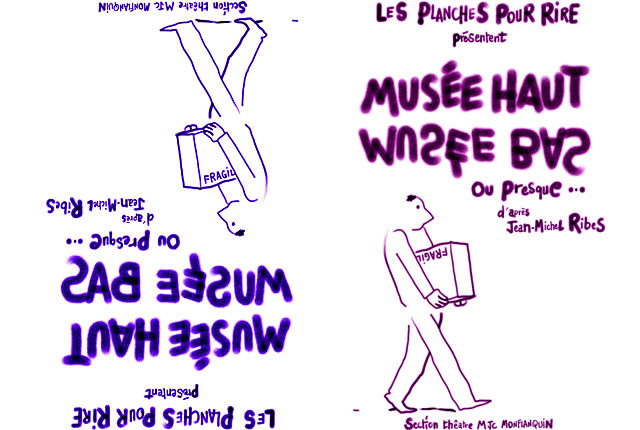 LES PLANCHES POUR RIRE
présentent
MUSÉE HAUT
MUSÉE BAS
Ou presque ...
d'après
Jean-Michel Ribes
FRAGIL
Section théâtre MJC MONFLANQUIN
LES PLANCHES POUR RIRE
présentent
MUSÉE HAUT
MUSÉE BAS
Ou presque ...
d'après
Jean-Michel Ribes
FRAGIL
Section théâtre MJC MONFLANQUIN